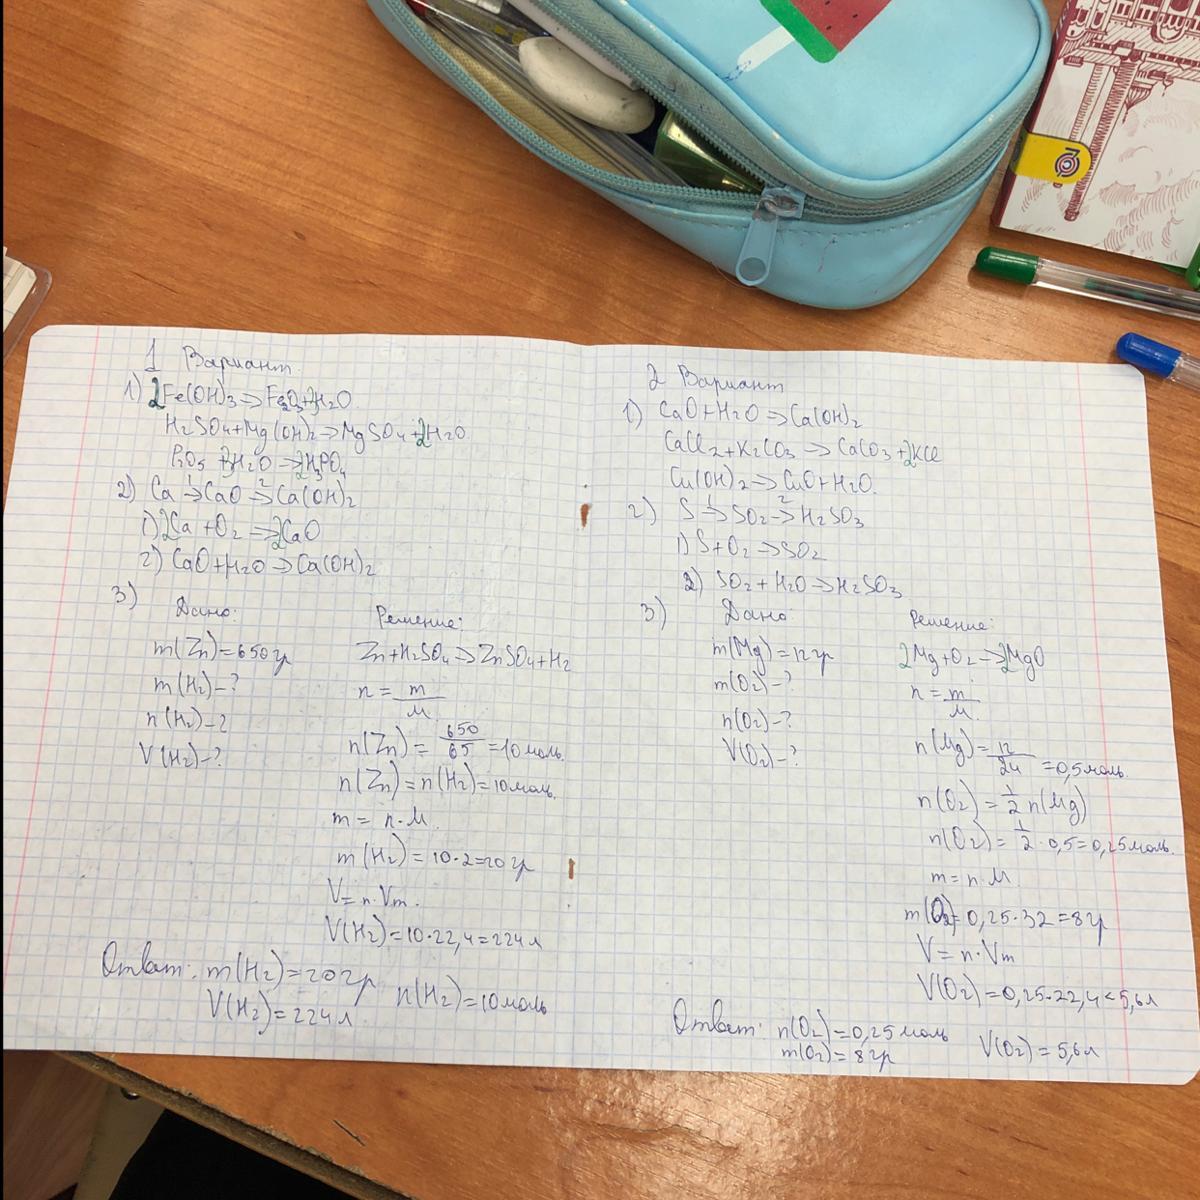 1 Вариант
1) 2Fe(OH)3 => Fe2O3+3H2O
H2SO4+Mg(OH)2 => MgSO4+2H2O
P2O5+3H2O => 2H3PO4
2) Ca -1-> CaO -2-> Ca(OH)2
1) 2Ca + O2 => 2CaO
2) CaO+H2O => Ca(OH)2
3)
Дано:
m(Zn)=650гр
m(H2)-?
n(H2)-?
V(H2)-?
Решение:
Zn+H2SO4 => ZnSO4+H2
n = m/M
n(Zn) = 650/65 = 10 моль.
n(Zn)=n(H2)=10моль.
m = n·M.
m(H2)=10·2=20гр
V=n·Vm.
V(H2)=10·22,4=224л
Ответ: m(H2)=20гр n(H2)=10моль
V(H2)=224л
2 Вариант
1) CaO+H2O => Ca(OH)2
CaCl2+K2CO3 => CaCO3+2KCl
Cu(OH)2 => CuO+H2O.
2) S -1-> SO2 -2-> H2SO3
1) S+O2 => SO2
2) SO2+H2O => H2SO3
3)
Дано:
m(Mg)=12гр
m(O2)-?
n(O2)-?
V(O2)-?
Решение:
2Mg+O2 => 2MgO
n = m/M.
n(Mg)= 12/24 =0,5моль.
n(O2)= 1/2 n(Mg)
n(O2)= 1/2 · 0,5=0,25моль.
m=n·M.
m(O2)=0,25·32=8гр
V=n·Vm
V(O2)=0,25·22,4=5,6л
Ответ: n(O2)=0,25моль V(O2)=5,6л
m(O2)=8гр